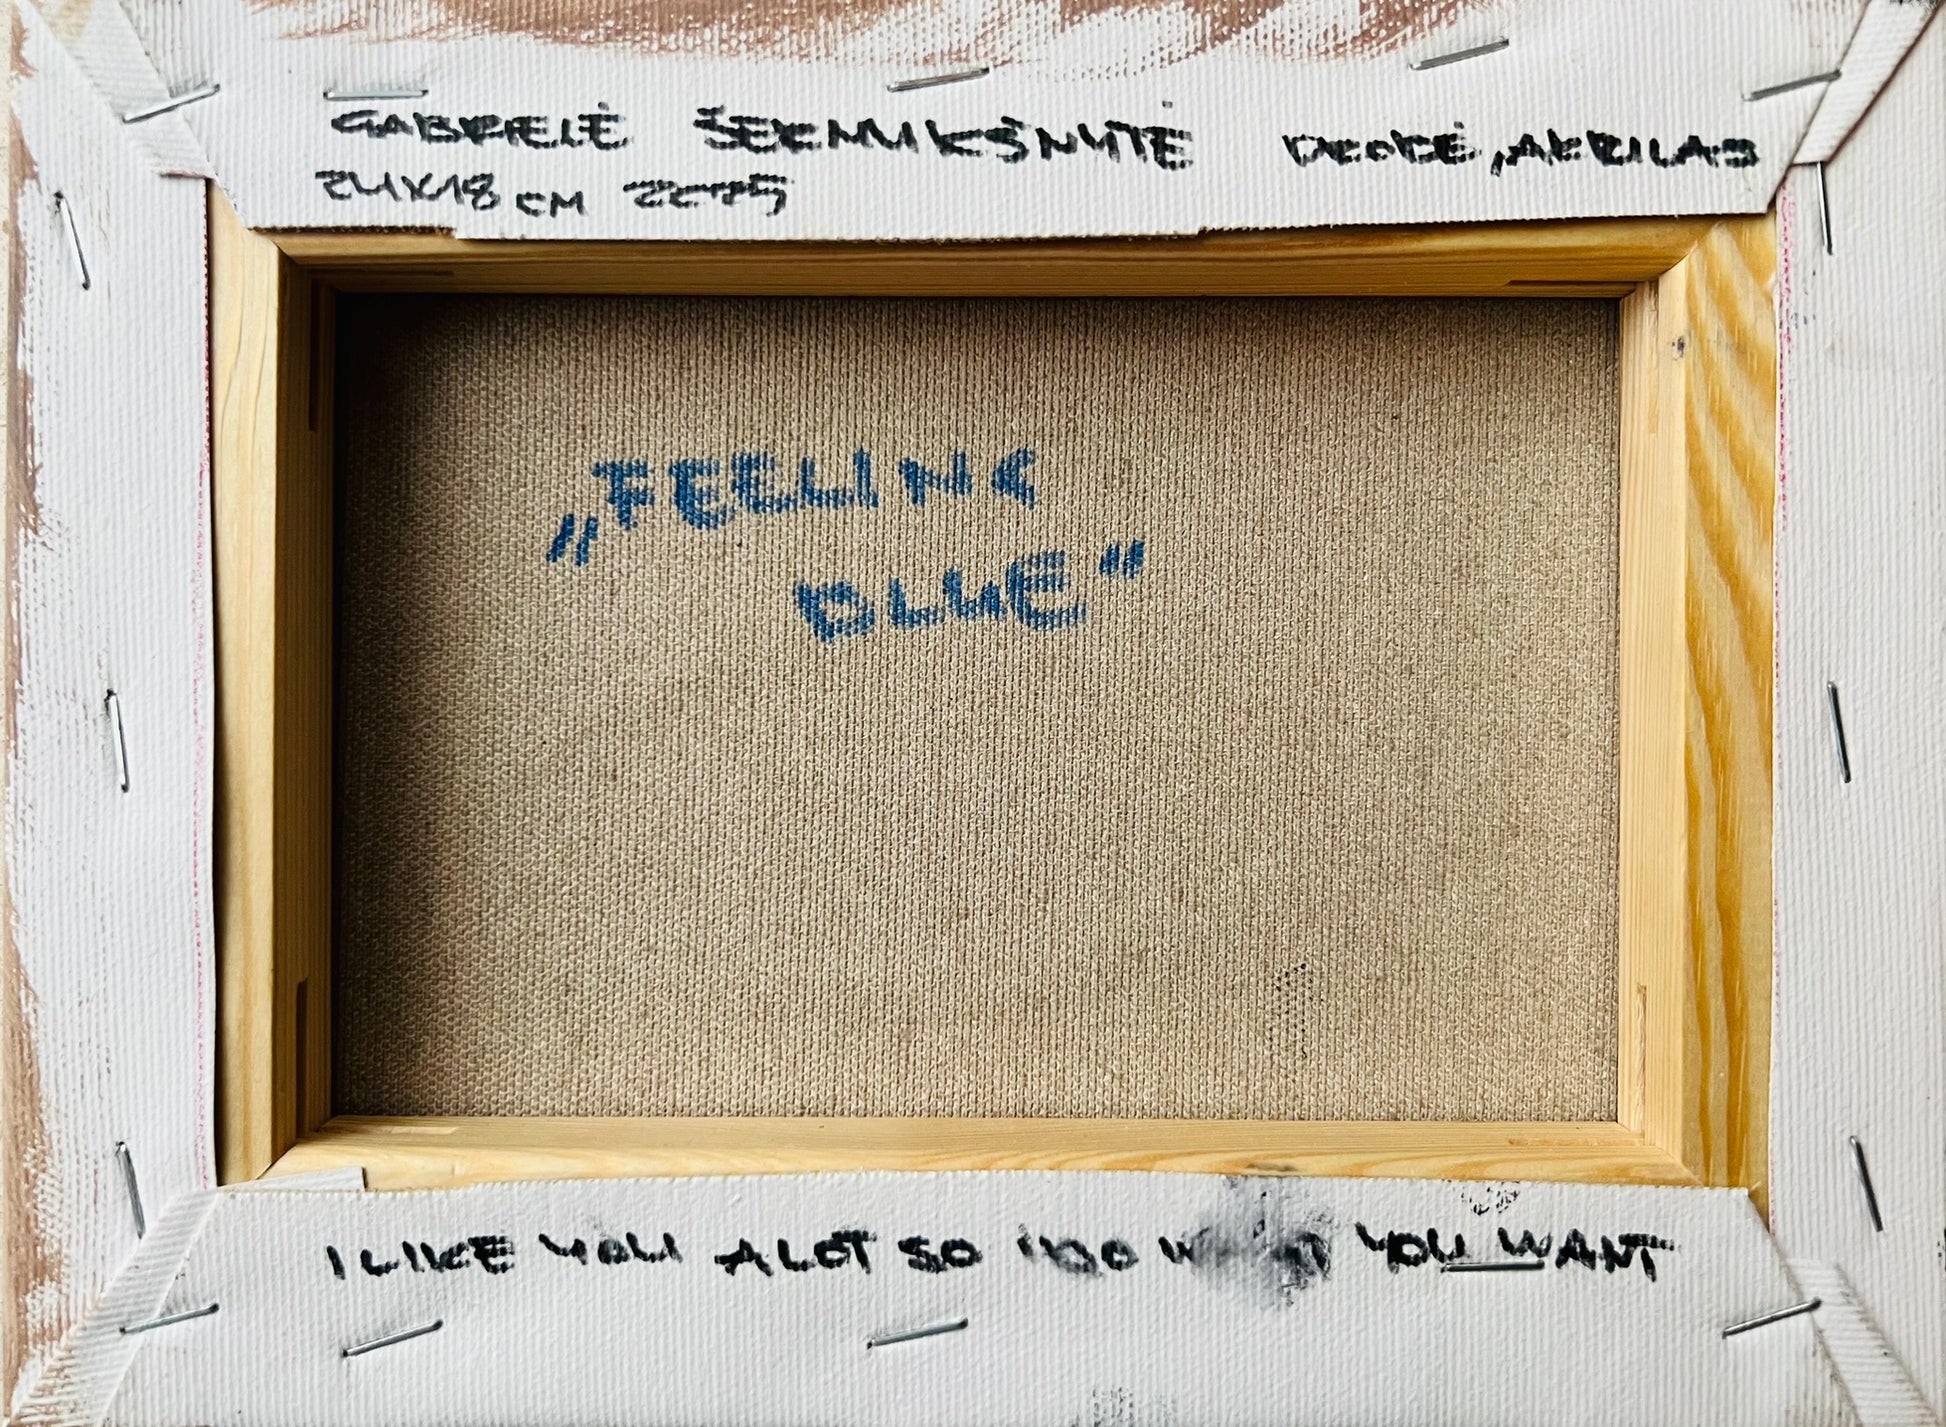 GABRIELĖ ŠERMUKŠNYTĖ DROBĖ, AKRILAS
24X18 CM 2025
„FEELING
BLUE"
I LIKE YOU A LOT SO I DO WHAT YOU WANT